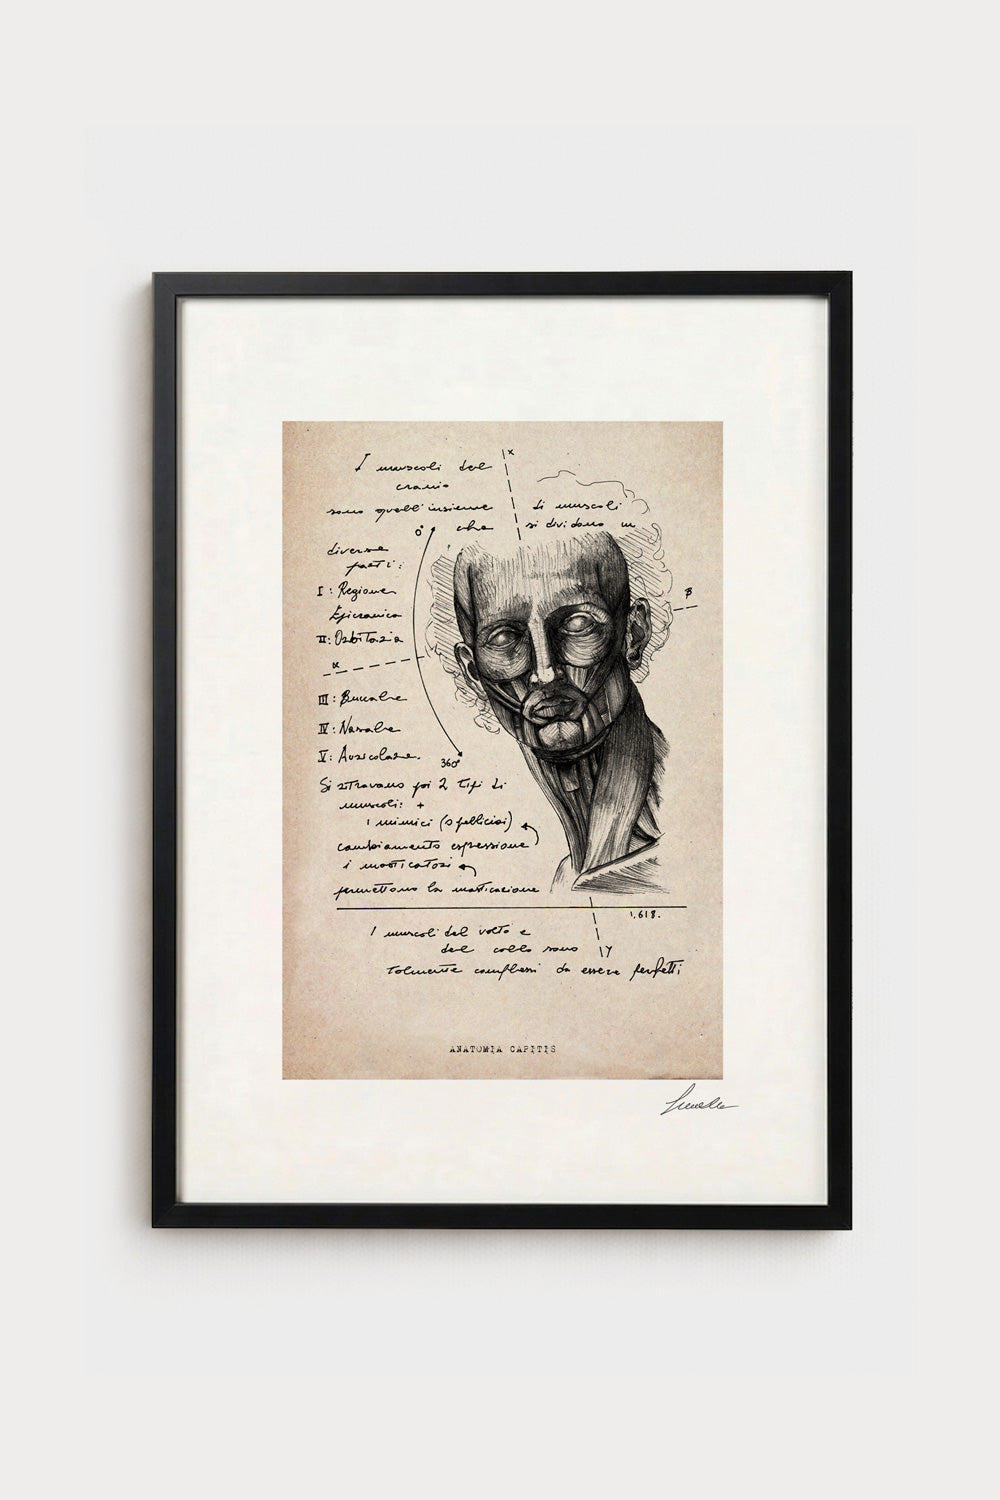 I muscoli del
cranio
sono quell'insieme di muscoli
che si dividono in
diverse
parti:
I: Regione
Epicranica
II: Orbitaria
III: Buccale
IV: Nasale
V: Auricolare.
Si ritrovano poi 2 tipi di
muscoli: +
i mimici (o pellicciai)
cambiamento espressione
i masticatori
permettono la masticazione
I muscoli del volto e
del collo sono
talmente complessi da essere perfetti
x
0°
β
α
360°
1,618.
Y
ANATOMIA CAPITIS